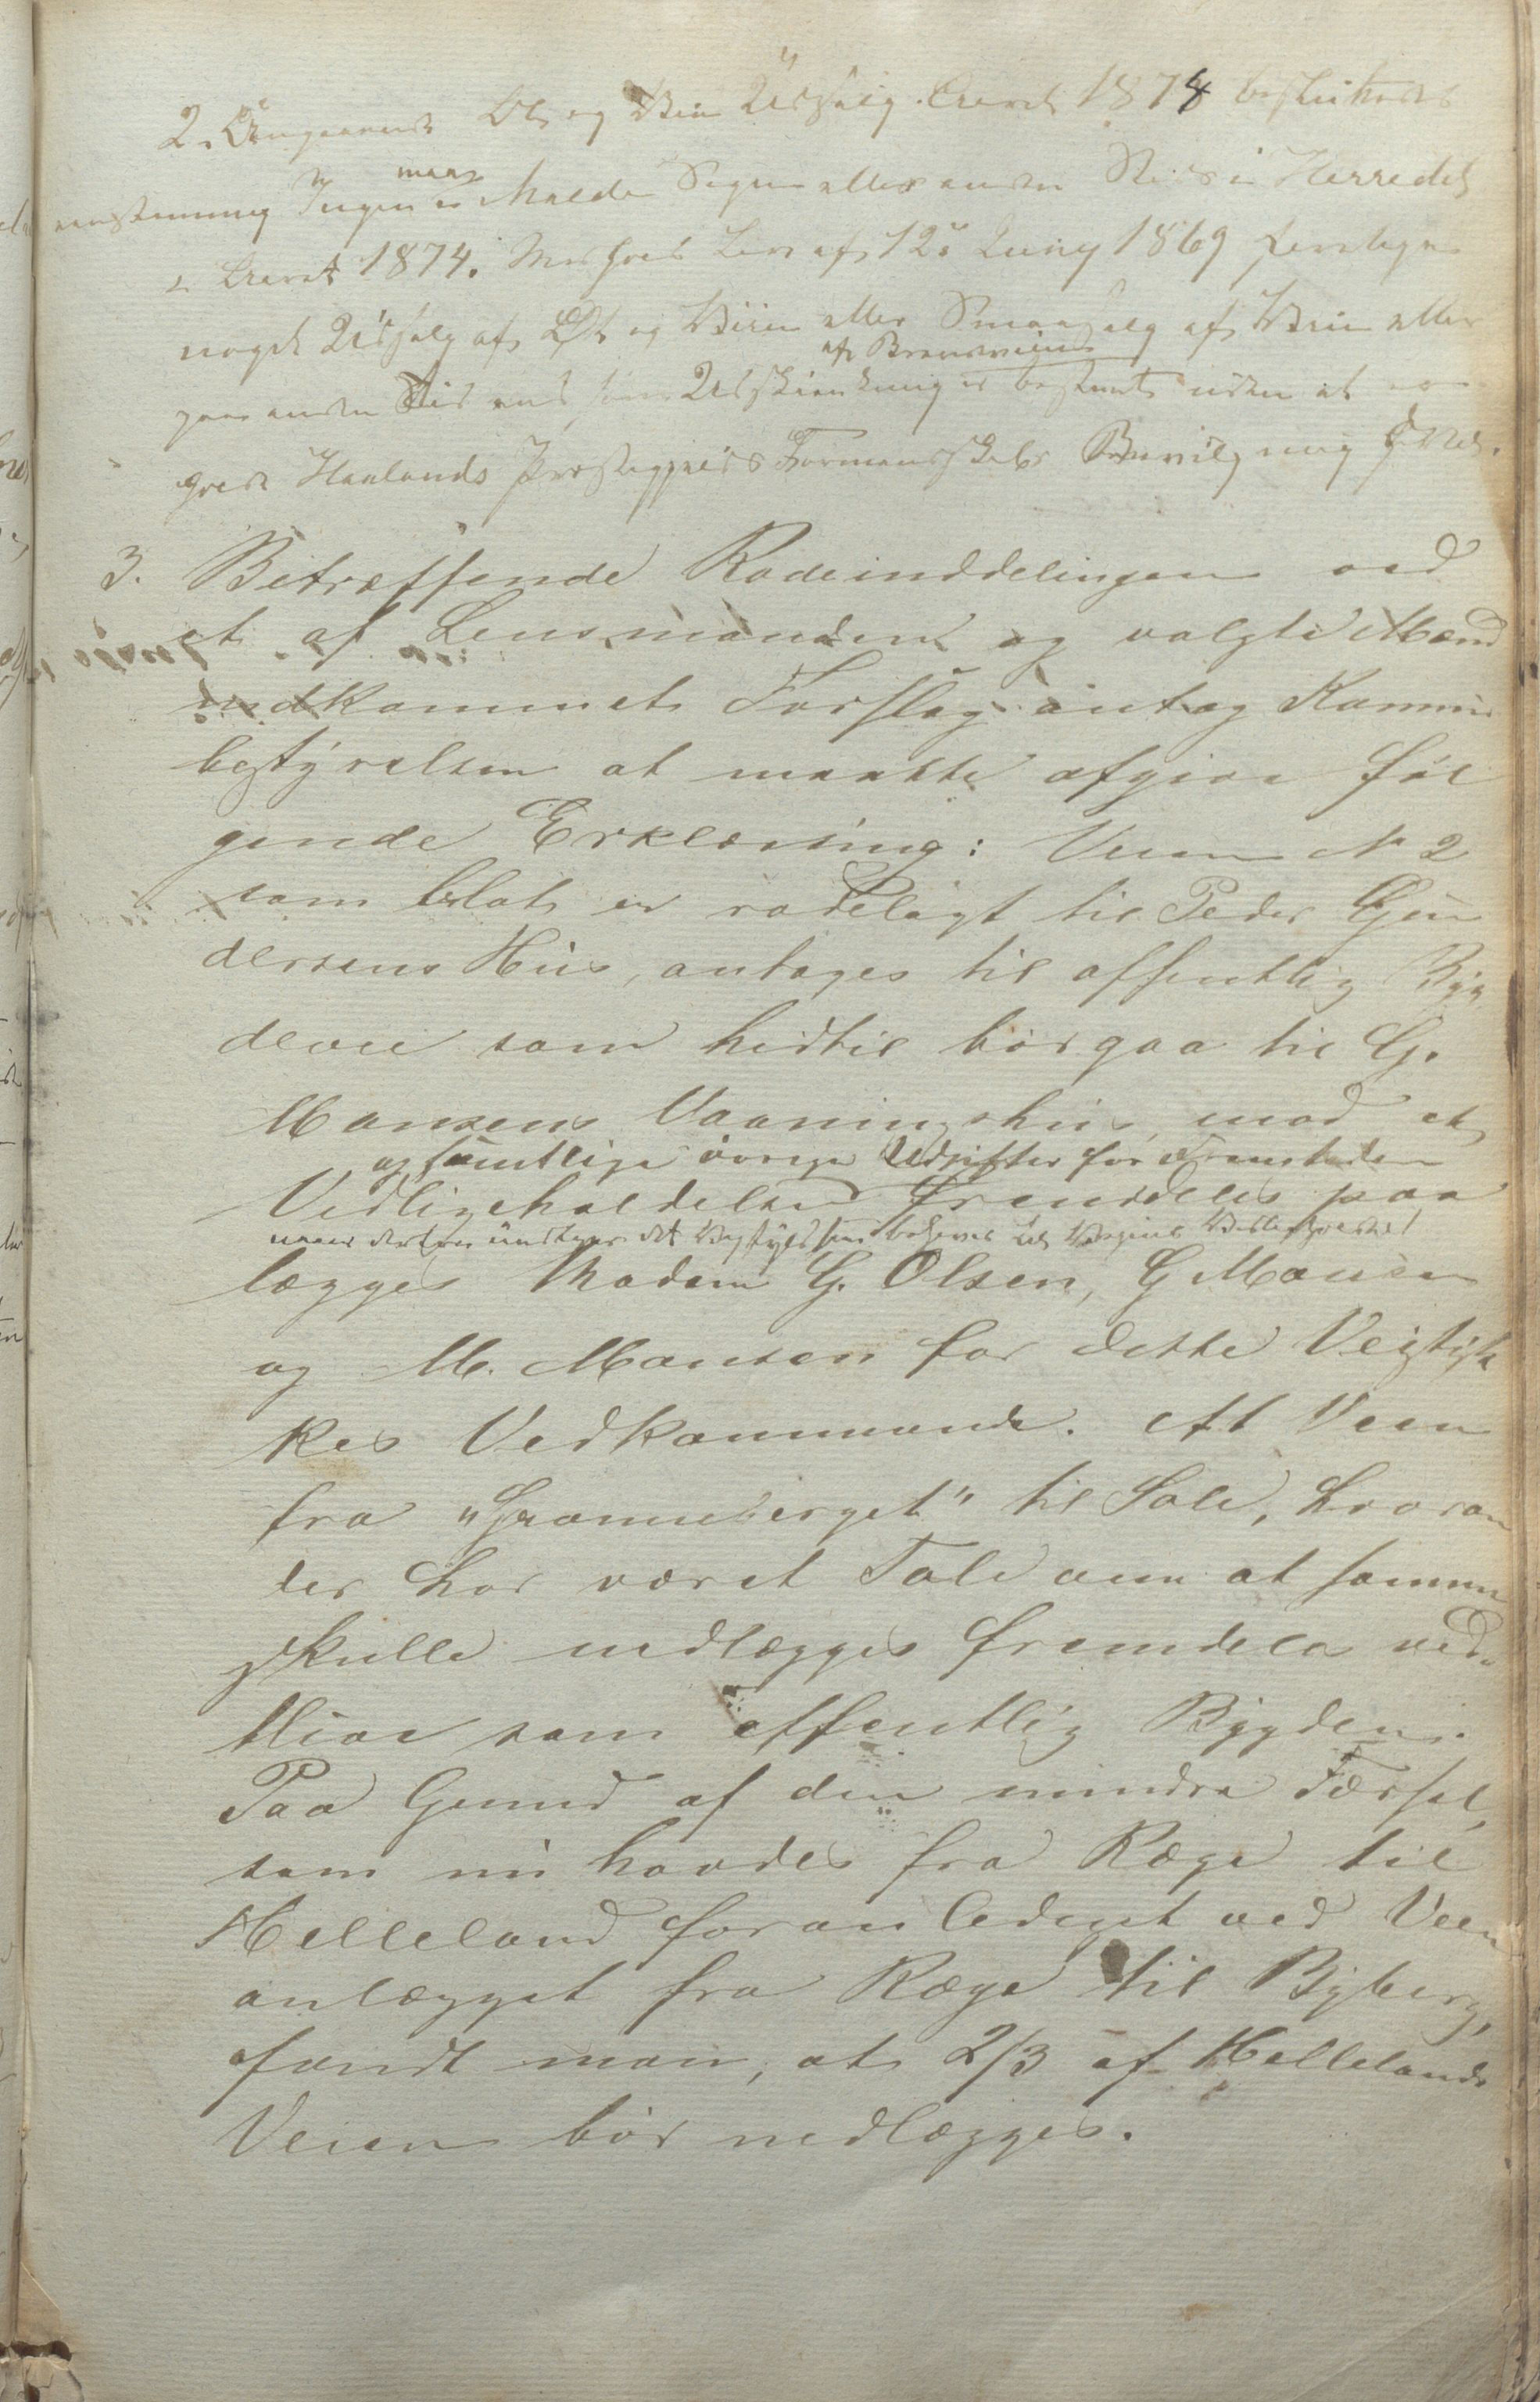 2. Angaaende Øl og Viin Udsalg Aaret 1874 besluttedes
eenstemmig Ingen maa i Malde Sogn eller andre Steds i Herredet
i Aaret 1874. Med hold Lov af 12te Juny 1869
noget Udsalg af Øl og Viin eller Smaasalg af Viin eller
paa anden Tid end som Udskienkning af Brændeviin er bestemt uden at
Haalands Præstegjelds Formandskabs Bevilgning
3. Betræffende Rodeinddelingen ved
et af Lensmanden og valgte Mænd
indkommet Forslag antog Kommu
bestyrelsen at maatte afgive føl
gende Erklæring: Veien N 2
som blot er rodelagt til Peder Gun
dersens Huus, antages til offentlig Byg
devei som hidtil bør gaa til G.
Monsens Vaaningshus, mod at
og samtlige øvrige Udgifter for Fremtiden
Vedligeholdelsen fremdeles paa
naar dertil undtages det Veyfyld som behøves til Veyens Vedligehold
lægges Madam G. Olsen, G Monsen
og M. Monsen for dette Veistyk
kes Vedkommende. At Veien
fra "Granneberget" til Sole, hvorom
der har været Tale om at samme
skulle nedlægges fremdeles ved
blive som offentlig Bygdevei.
Paa Grund af den mindre Færsel,
som nu havdes fra Ræge til
Helleland foranlediget ved Vei
anlægget fra Ræge til Byberg,
fandt man, at 2/3 af Hellelands
Veien bør nedlægges.